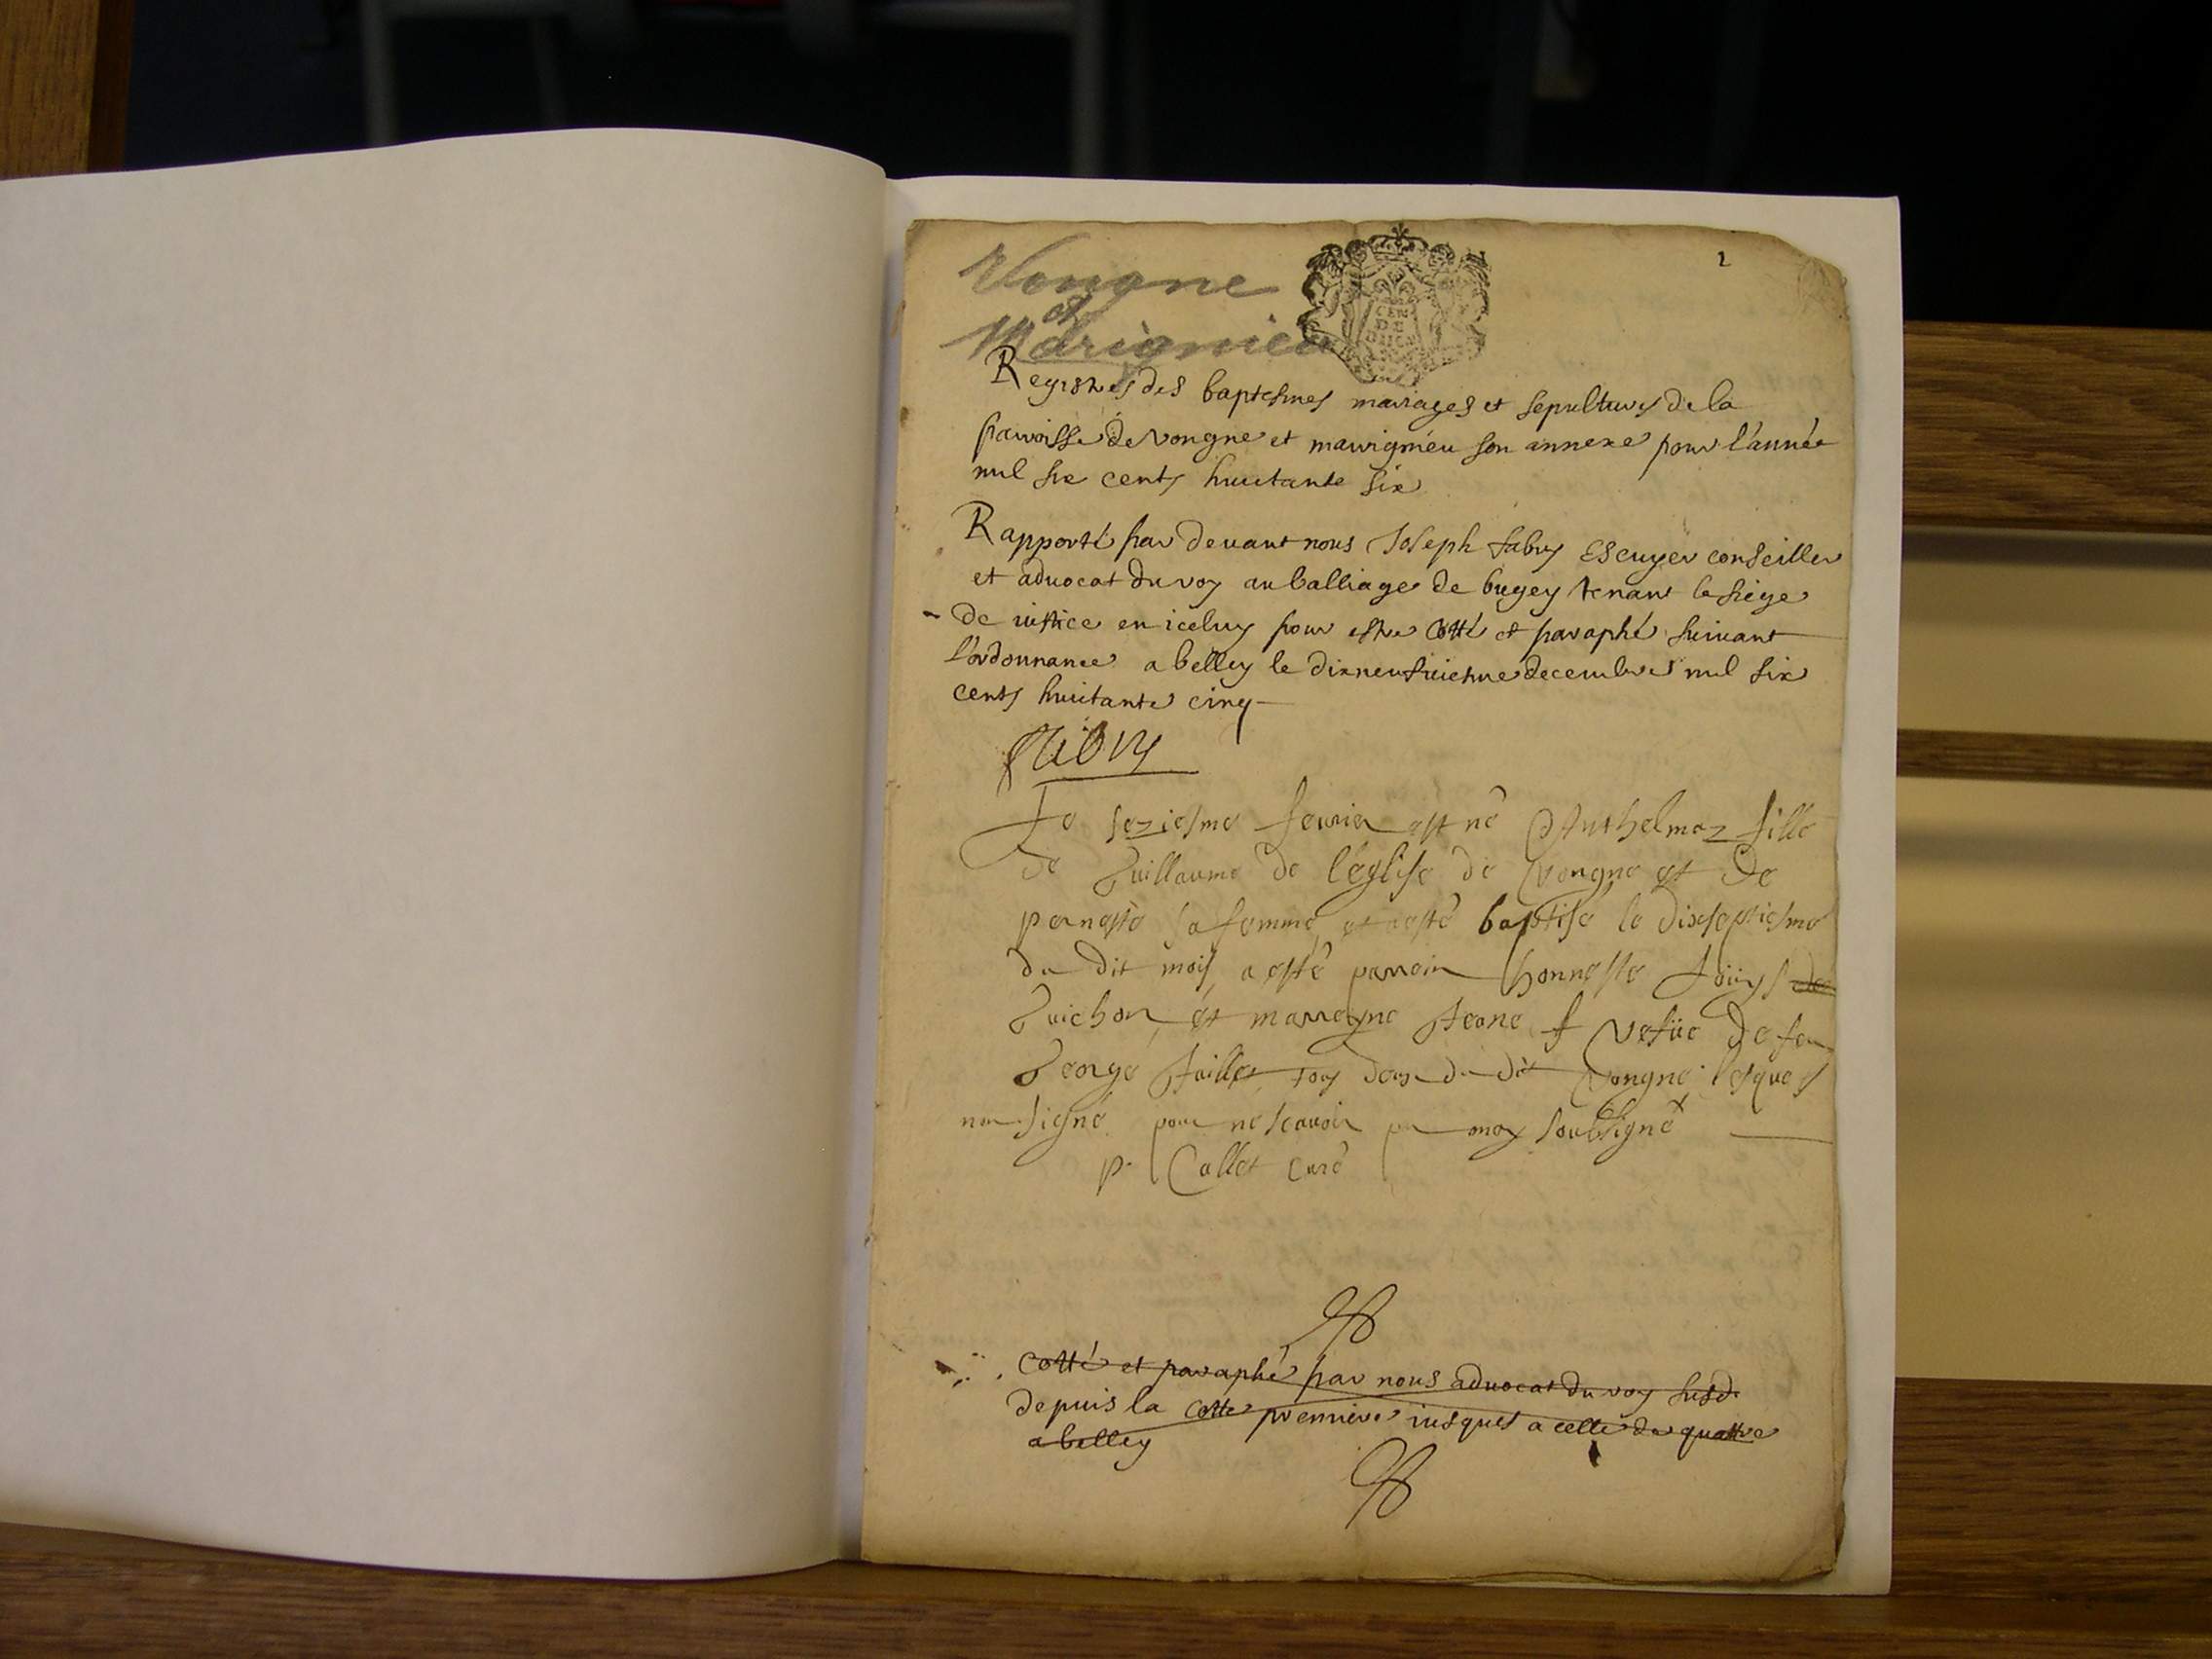 Vongne
et
Marignieu
GEN
DE
2
Registres des baptesmes mariages et sepultures de la
parroisse de vongne et marrignieu son annexe pour l'année
mil six cents huictante six
Rapporté par devant nous Joseph fabry Escuyer conseiller
et aduocat du roy au balliage de bugey tenant le siege
de iustice en iceluy pour estre cotté et paraphé suiuant
l'ordonnance a belley le dixneufuiesme decembre mil six
cents huictante cinq
fabry
Le seziesme feurier est né Anthelmaz fille
de Guillaume de léglise de Vongne et de
pernette sa femme et a esté baptisé le dixseptiesme
du dit mois, a esté parrain honneste Loüys de
Guichon, et marrayne Jeane f vefüe de feu
George tous deux du dit Vongne lesques
non signé pour ne scauoir par moy soubsigné
p. Callet curé
cotté et paraphé par nous aduocat du roy susd.
depuis la cotte premiere iusques a celle de quattre
a belley